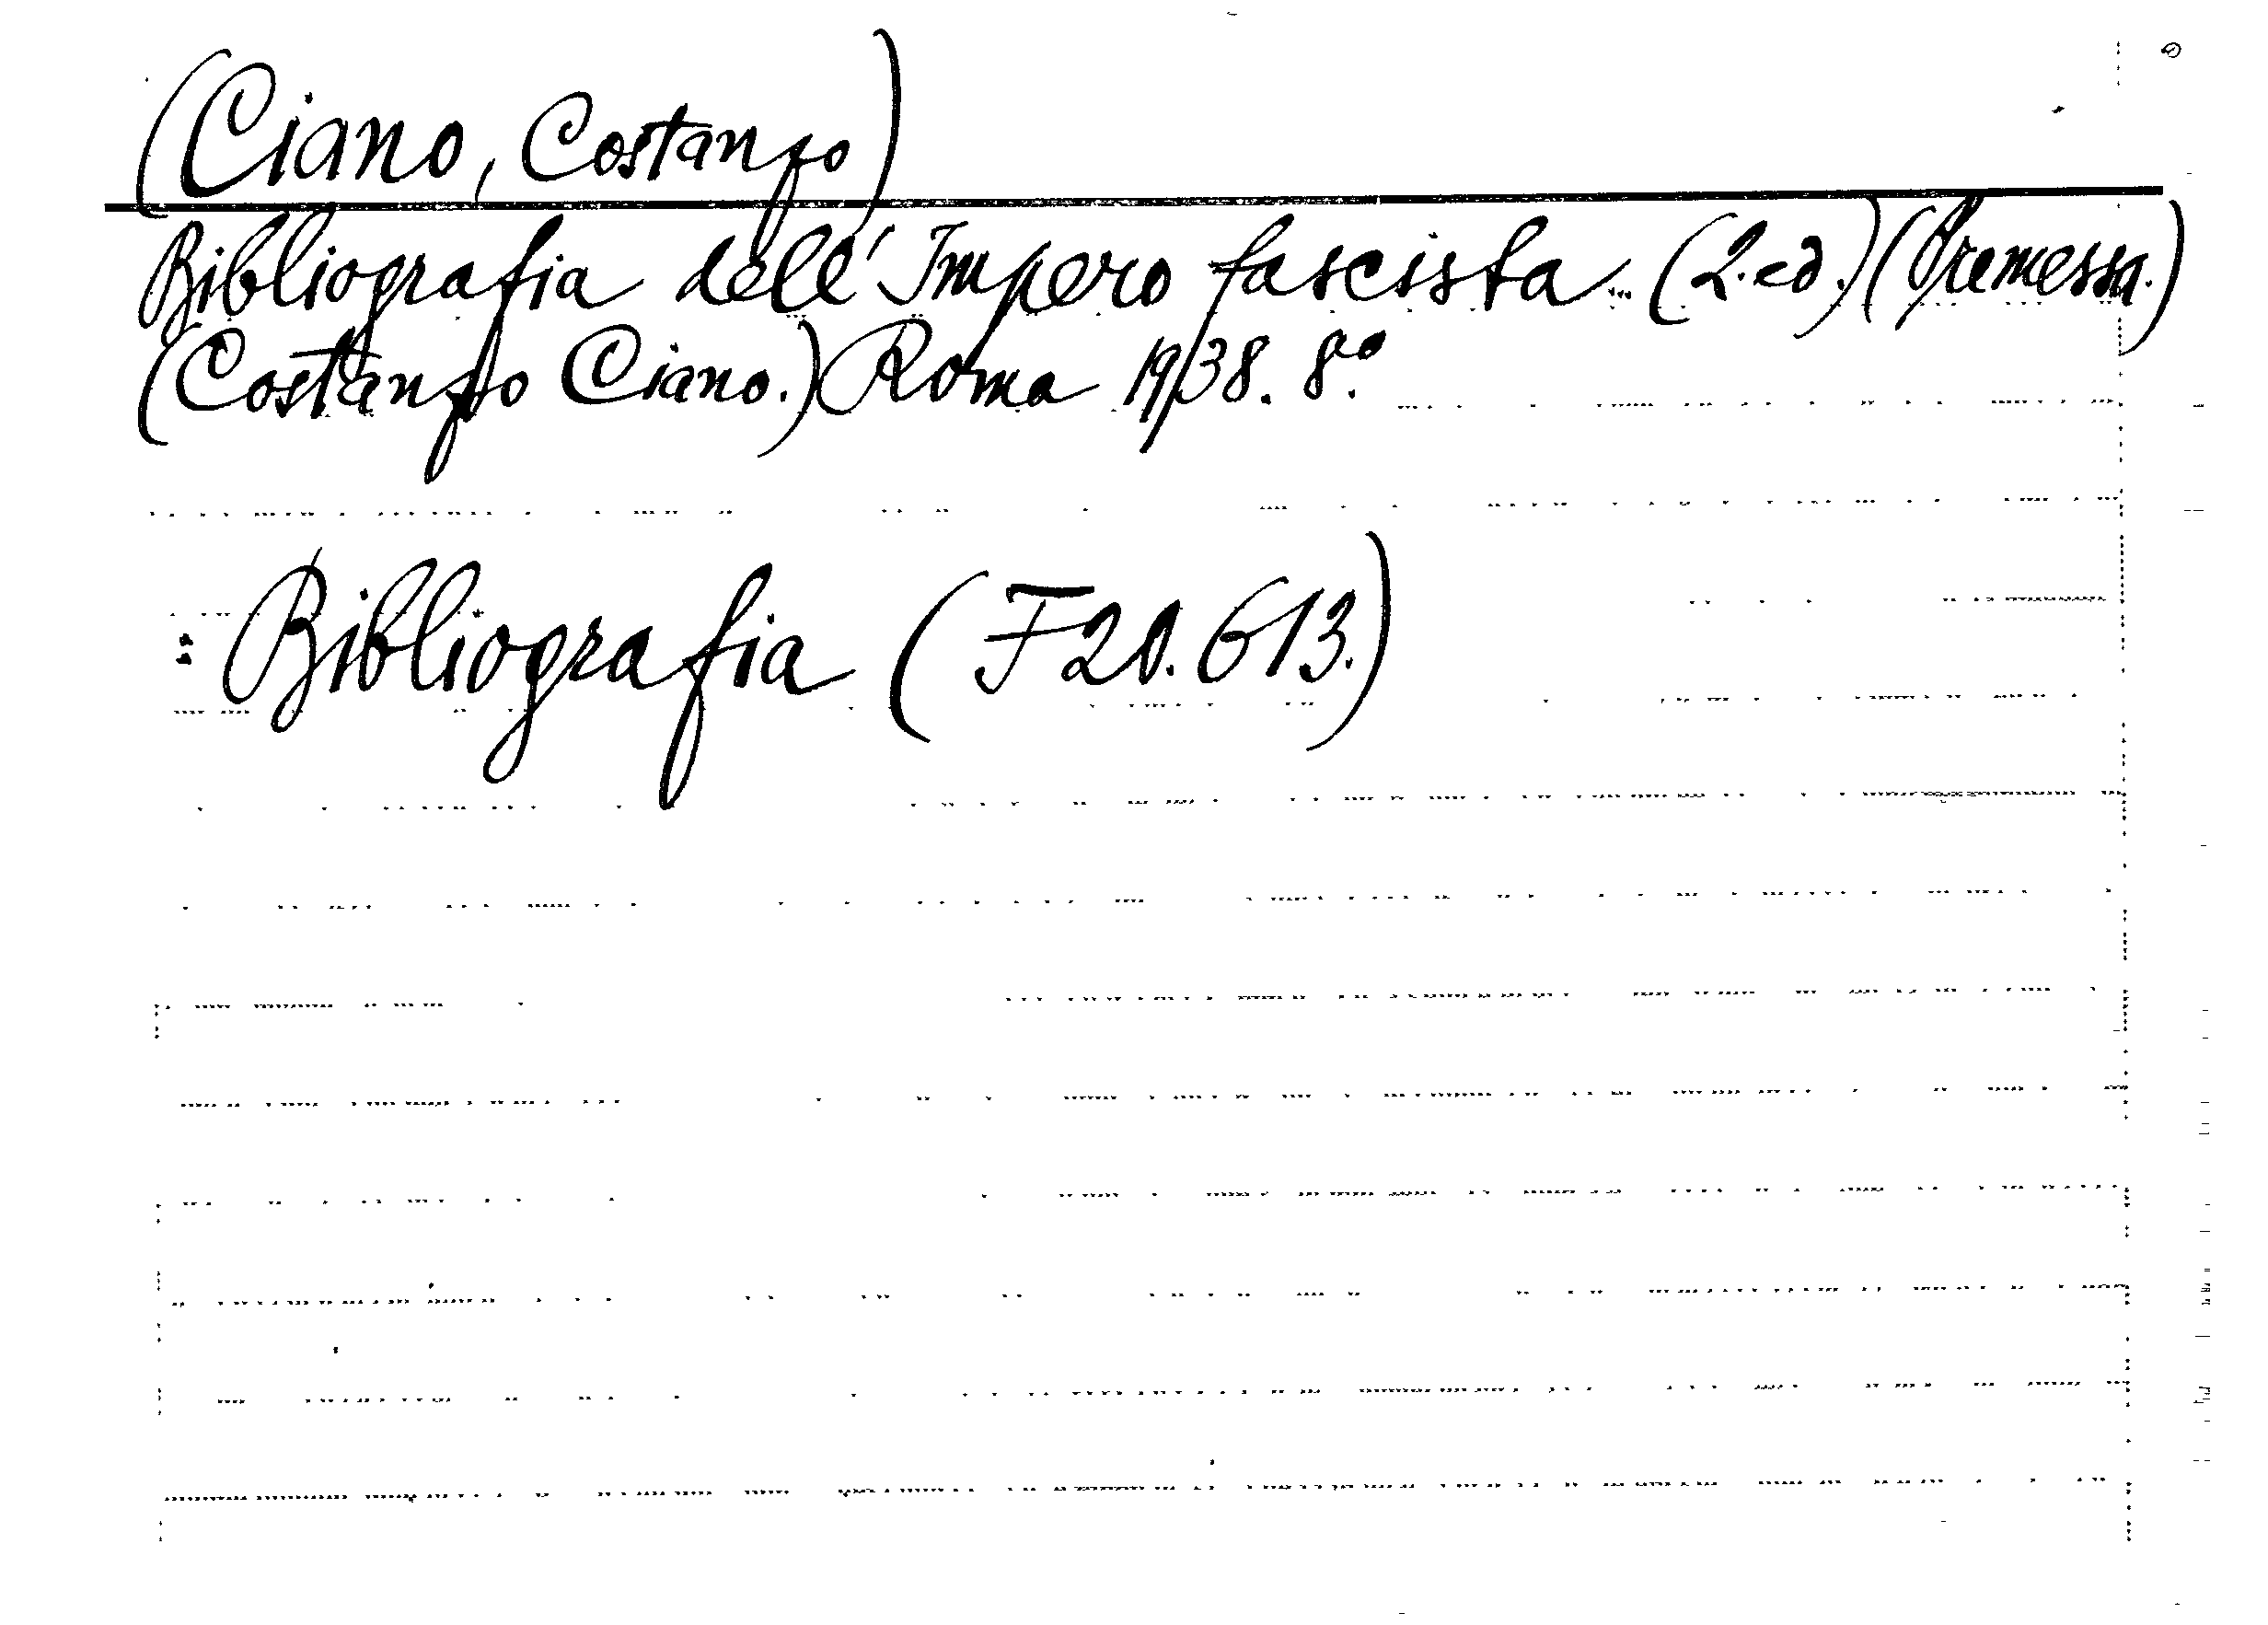 (Ciano, Costanzo)
Bibliografia dell'Impero fascista... (2.ed.) (Premessa.)
(Costanzo Ciano.) Roma 1938. 8.o
: Bibliografia (F20.613.)